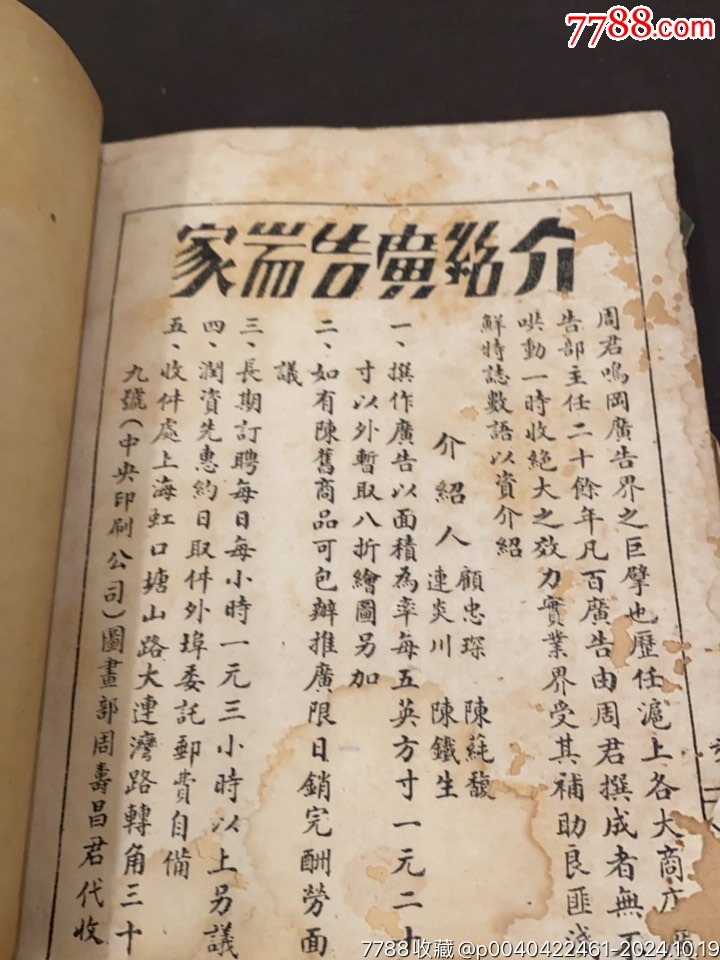 7788.com
介紹廣告耑家
周君鳴岡廣告界之巨擘也歷任滬上各大商
告部主任二十餘年凡百廣告由周君撰成者無不
哄動一時收絕大之效力實業界受其補助良匪淺
鮮特誌數語以資介紹
介紹人
顧忠琛 陳蒓馥
連炎川 陳鐵生
一、撰作廣告以面積為率每五英方寸一元二十
寸以外暫取八折繪圖另加
二、如有陳舊商品可包辦推廣限日銷完酬勞面
議
三、長期訂聘每日每小時一元三小時以上另議
四、潤資先惠約日取件外埠委託郵費自備
五、收件處上海虹口塘山路大連灣路轉角三十
九號（中央印刷公司）圖畫部周壽昌君代收
7788收藏 @p0040422461-2024.10.19